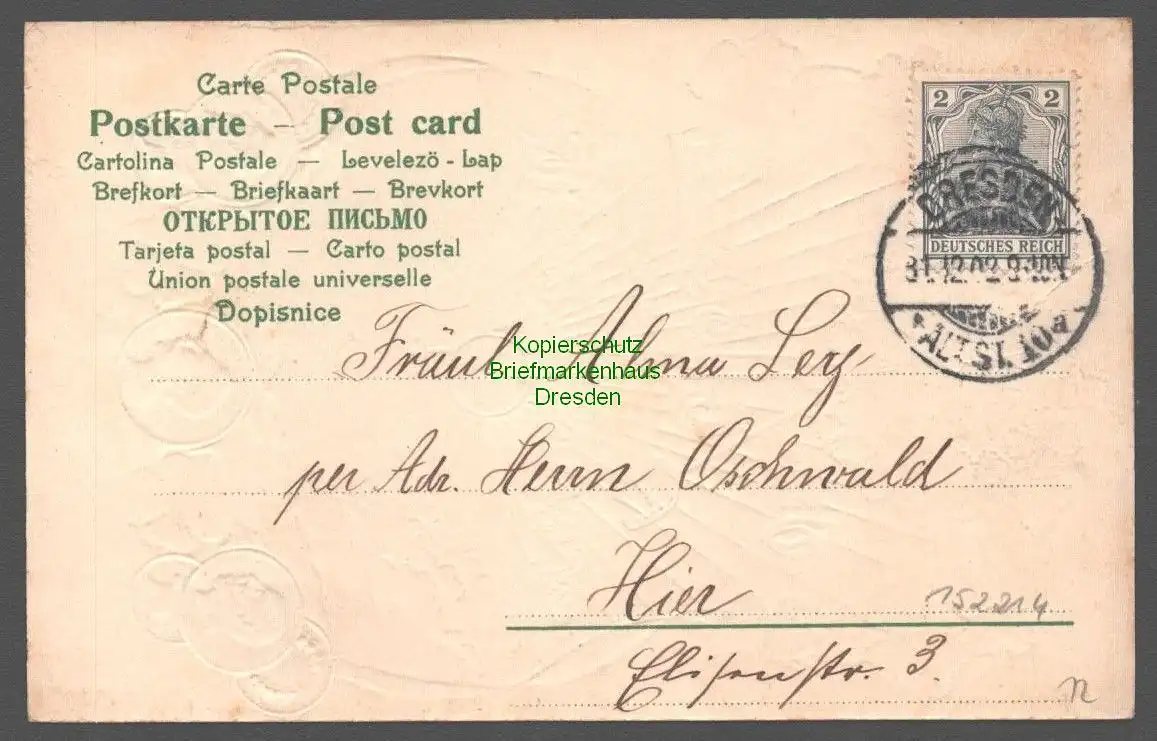 Carte Postale
Postkarte — Post card
Cartolina Postale — Levelezö - Lap
Brefkort — Briefkaart — Brevkort
ОТКРЫТОЕ ПИСЬМО
Tarjeta postal — Carto postal
Union postale universelle
Dopisnice
2 2
DEUTSCHES REICH
DRESDEN
31.12.02.8-
* ALTST.
Kopierschutz
Briefmarkenhaus
Dresden
Fräul. Alma Ley
per Adr. Herrn Oschwald
Hier
152214
Elisenstr. 3.